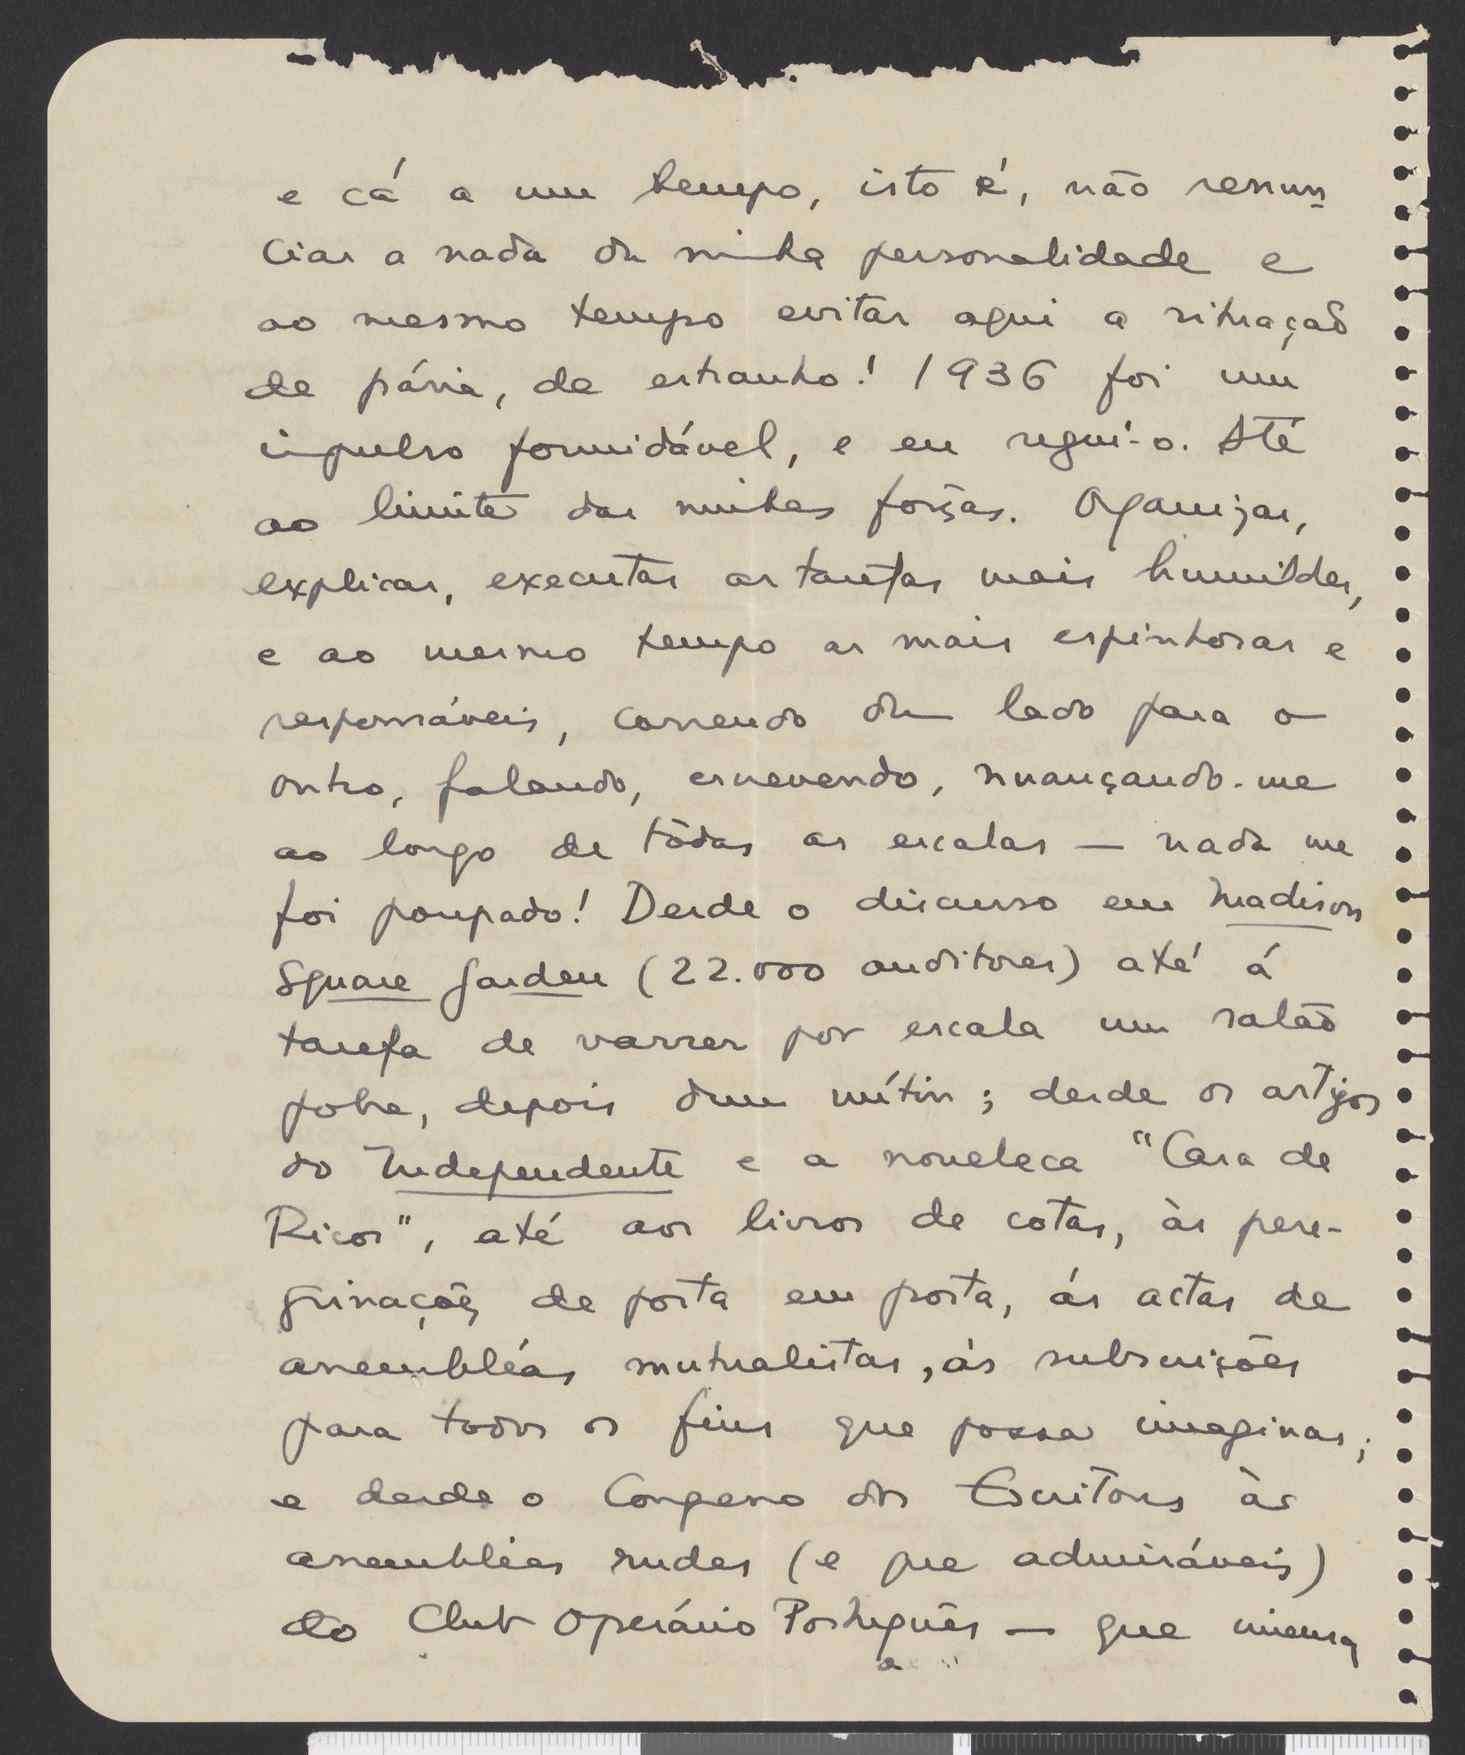 e cá a um tempo, isto é, não renun-
ciar a nada da minha personalidade e
ao mesmo tempo evitar aqui a situação
de pária, de estranho! 1936 foi um
impulso formidável, e eu segui-o. Até
ao limite das minhas fôrças. Organizar,
explicar, executar as tarefas mais humildes,
e ao mesmo tempo as mais espinhosas e
responsáveis, correndo dum lado para o
outro, falando, escrevendo, nuançando-me
ao longo de tôdas as escalas — nada me
foi poupado! Desde o discurso em Madison
Square Garden (22.000 auditores) até á
tarefa de varrer por escala um salão
pobre, depois dum mítin; desde os artigos
do Independente e a noveleca "Casa de
Ricos", até aos livros de cotas, às pere-
grinações de porta em porta, ás actas de
assembléas mutualistas, ás subscrições
para todos os fins que possa imaginar;
e desde o Congresso dos Escritores às
assembléas rudes (e que admiráveis)
do Club Operário Português — que imensa